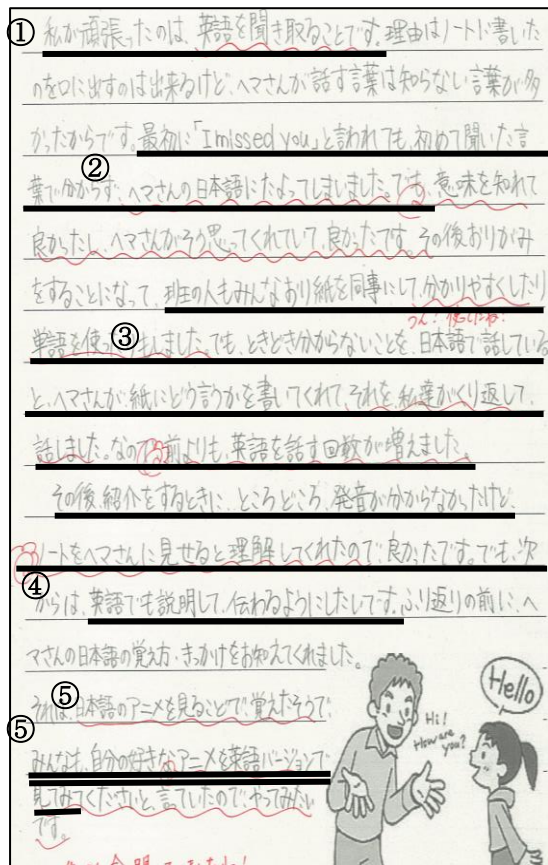 ① 私が頑張ったのは、英語を聞き取ることです。理由はノートに書いた
のを口に出すのは出来るけど、ヘマさんが話す言葉は知らない言葉が多
かったからです。最初に「I missed you」と言われても、初めて聞いた言
②
葉で分からず、ヘマさんの日本語にたよってしまいました。でも、意味を知れて
良かったし、ヘマさんがそう思ってくれていて、良かったです。その後おりがみ
をすることになって、班の人もみんなおり紙を同事にして、分かりやすくしたり
③
単語を使ったりもしました。でも、ときどき分からないことを、日本語で話している
と、ヘマさんが紙にどう言うかを書いてくれて、それを、私達がくり返して、
話しました。なので前よりも、英語を話す回数が増えました。
その後、紹介をするときに、ところどころ、発音が分からなかったけど、
ノートをヘマさんに見せると理解してくれたので、良かったです。でも、次
④
からは、英語でも説明して、伝わるようにしたいです。ふり返りの前に、ヘ
マさんの日本語の覚え方・きっかけをお知えてくれました。
⑤
それは、日本語のアニメを見ることで、覚えたそうで、
⑤
みんなも、自分の好きなアニメを英語バージョンで
見てみてくださいと、言っていたので、やってみたい
です。
Hi!
How are you?
Hello